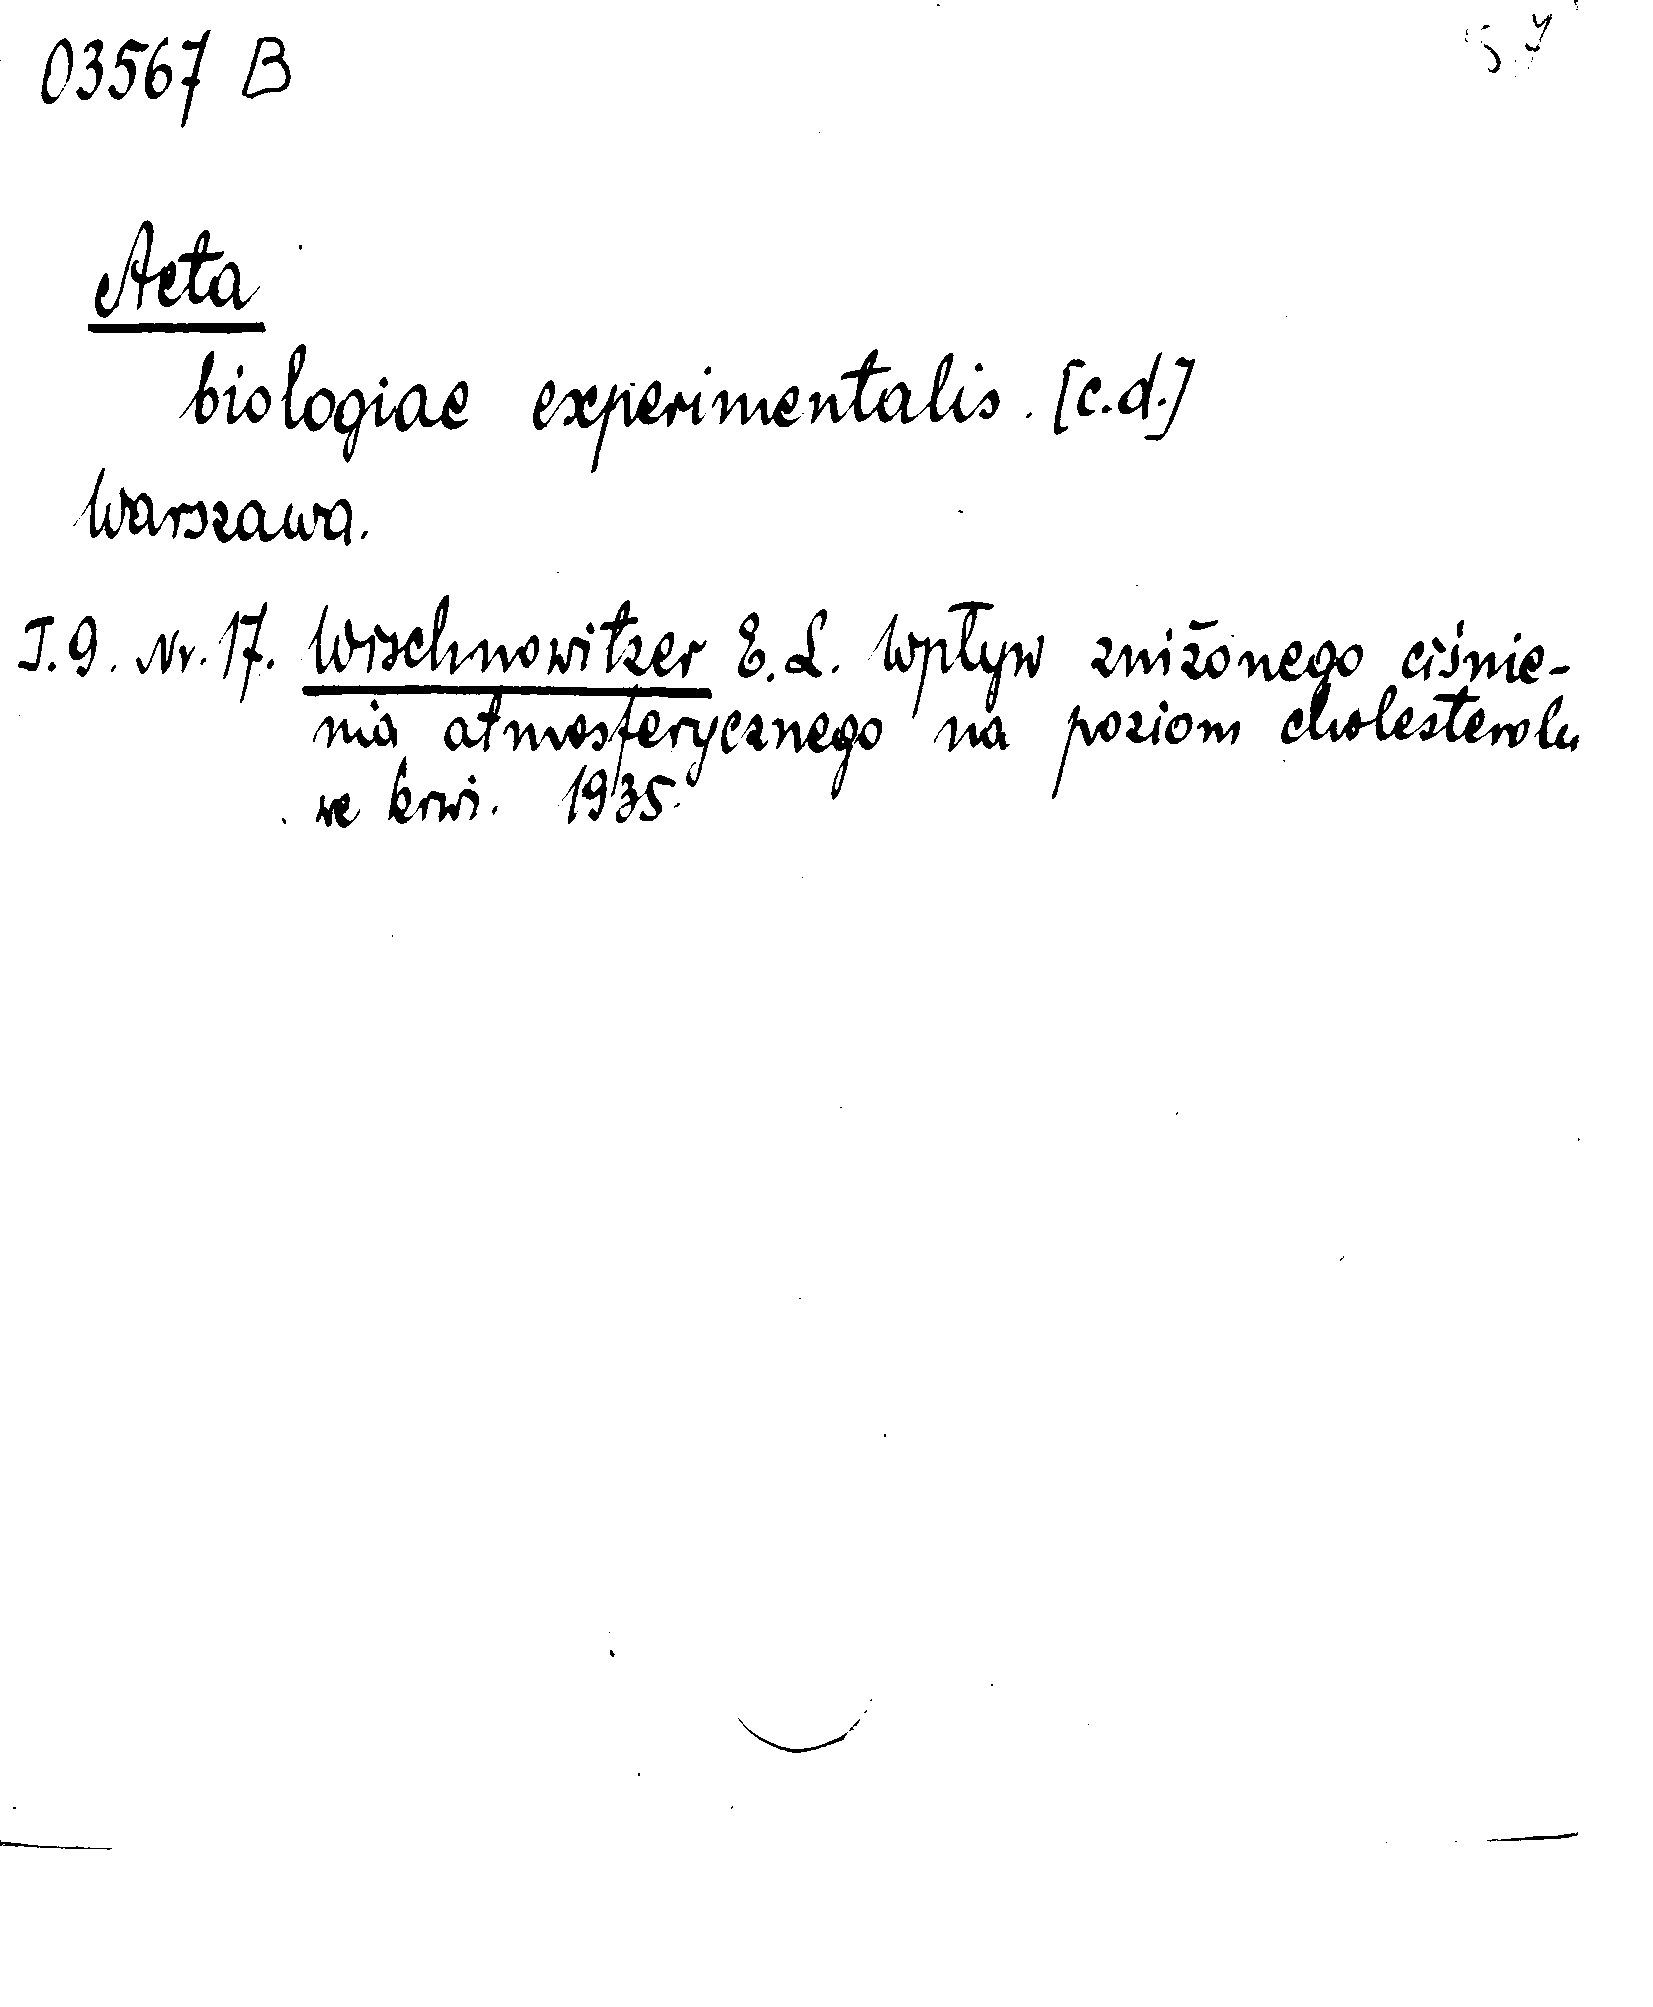 03567 B
Acta
biologiae experimentalis. [c.d.]
Warszawa.
T.9. Nr. 17. Wischnowitzer E.L. Wpływ zniżonego ciśnie-
nia atmosferycznego na poziom cholesterolu
we krwi. 1935.